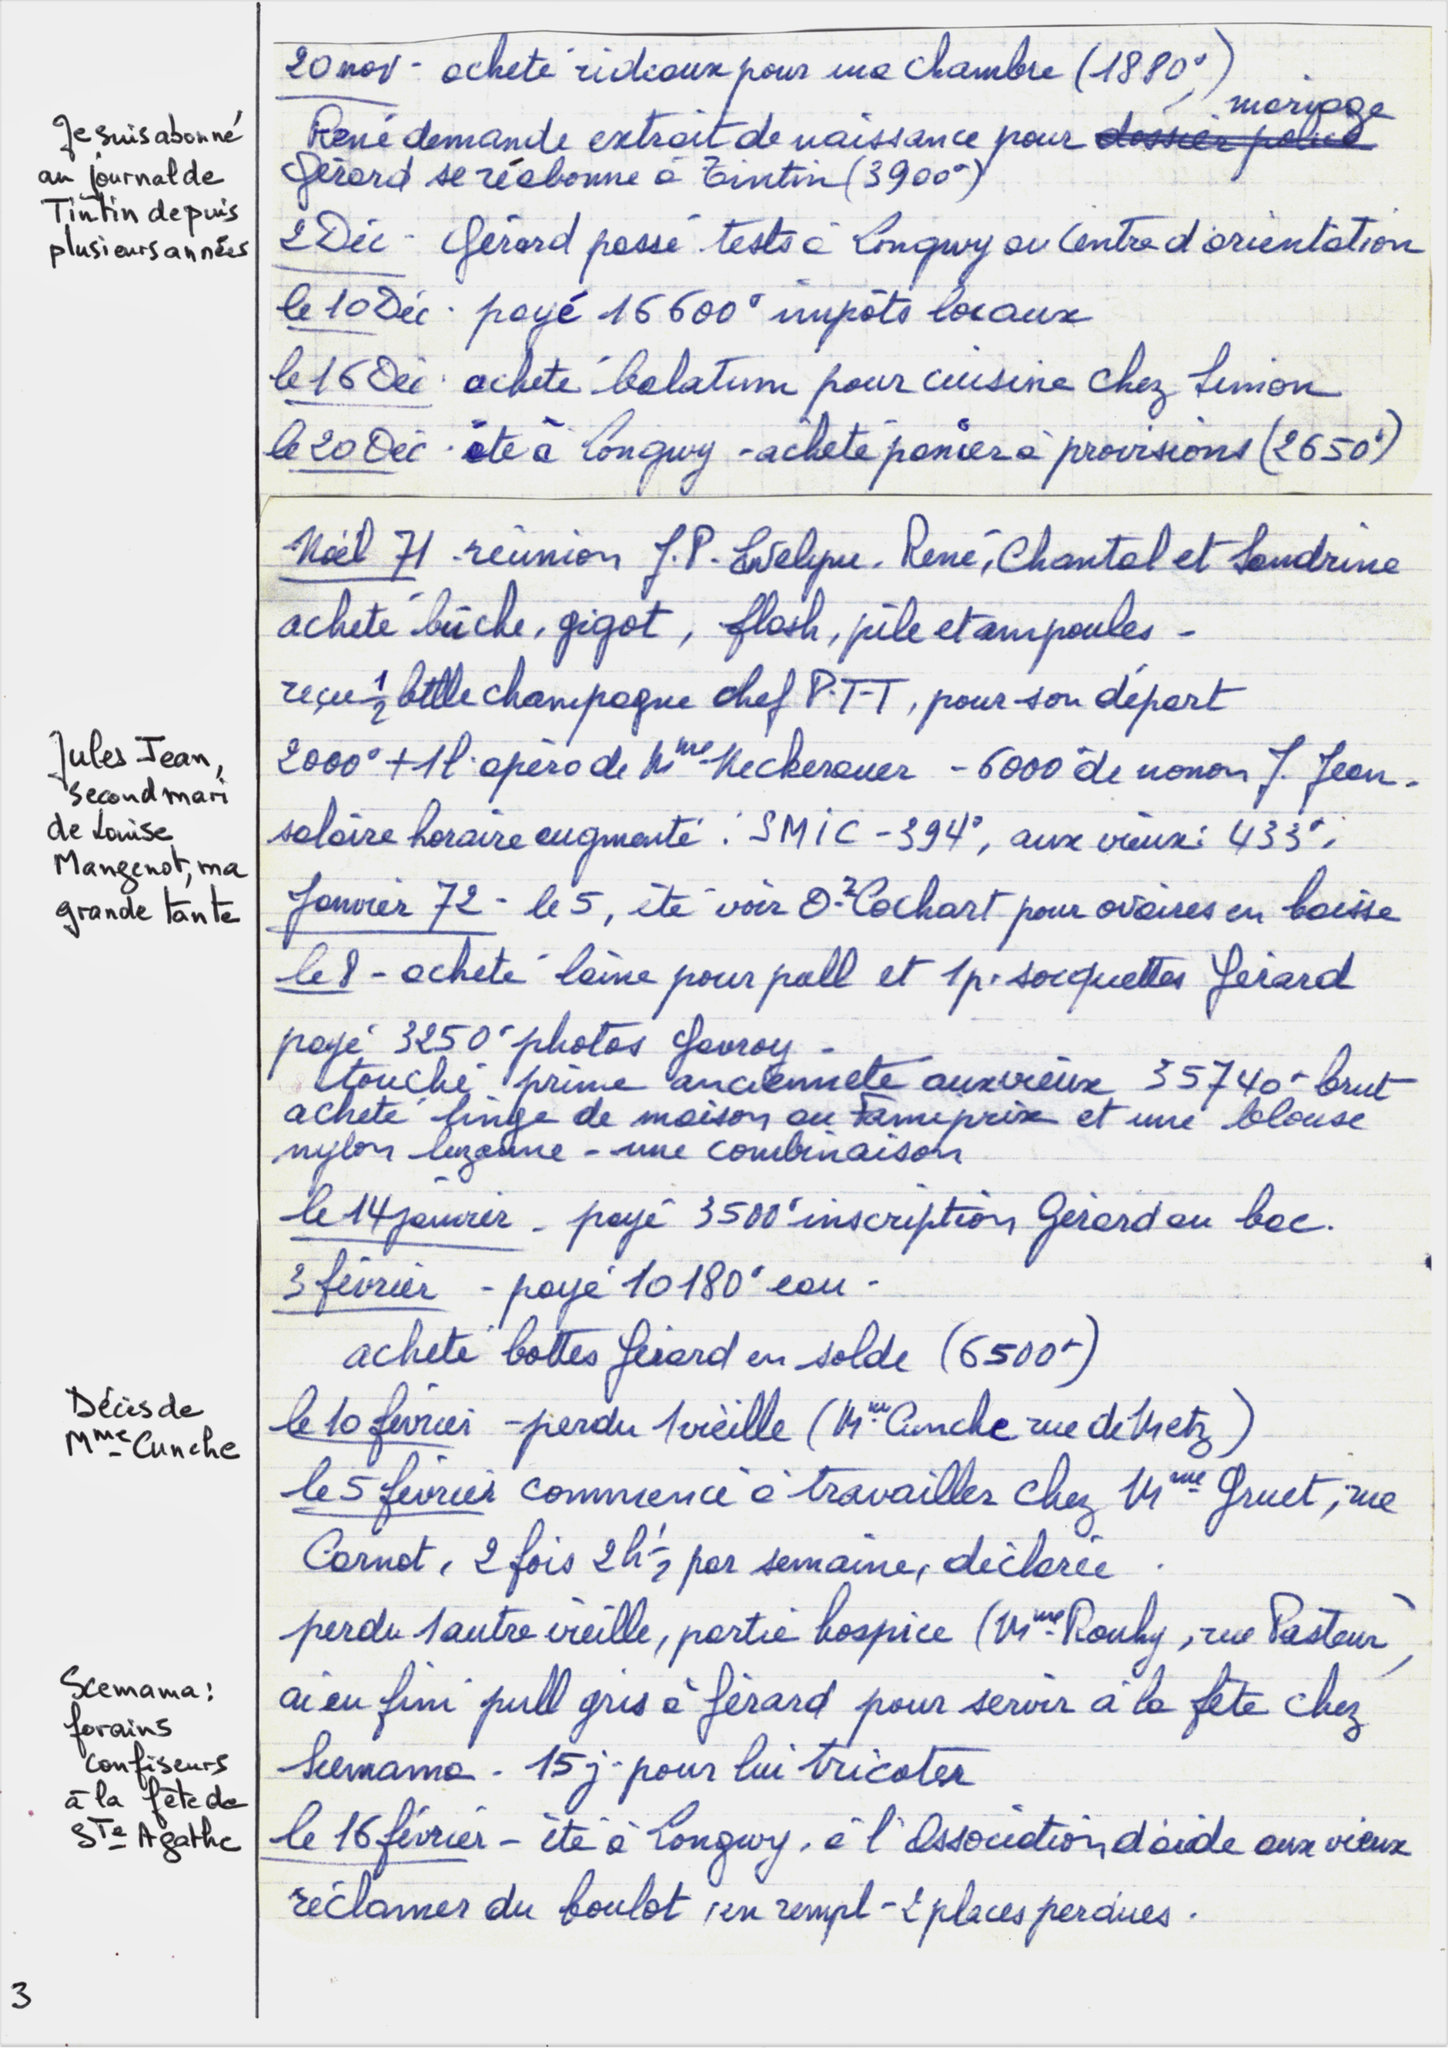 20 nov - acheté rideaux pour ma chambre (1880°)
mariage
René demande extrait de naissance pour
Gérard se réabonne à Tintin (3900°)
2 Déc - Gérard passé tests à Longwy au Centre d'orientation
le 10 Déc - payé 16600° impôts locaux
le 16 Déc - acheté balatum pour cuisine chez Simon
le 20 Déc - été à Longwy - acheté panier à provisions (2650°)
Je suis abonné
au journal de
Tintin depuis
plusieurs années
Noël 71 - réunion J.P. Evelyne. René, Chantal et Sandrine
acheté bûche, gigot, flash, pile et ampoules -
reçu 1/2 btlle champagne chef P.T.T, pour son départ
2000° + 1l. apéro de Mme Neckerauer - 6000 de nonon J. Jean -
salaire horaire augmenté : SMIC - 394°, aux vieux : 433°.
Jules Jean,
second mari
de Louise
Mangenot, ma
grande tante
Janvier 72 - le 5, été voir Dr Cochart pour ovaires en baisse
le 8 - acheté laine pour pull et 1 p. socquettes Gérard
payé 3250° photos Gavroy -
touché prime ancienneté aux vieux 35740° brut
acheté linge de maison au Fameprix et une blouse
nylon - une combinaison
le 14 janvier - payé 3500° inscription Gérard au bac.
3 février - payé 10180° eau -
acheté bottes Gérard en solde (6500°)
le 10 février - perdu 1 vieille (Mme Cunche rue de Metz)
Décès de
Mme Cunche
le 5 février commencé à travailler chez Mme Gruet, rue
Carnot, 2 fois 2h 1/2 par semaine, déclarée.
perdu 1 autre vieille, partie hospice (Mme Rouhy, rue Pasteur)
ai eu fini pull gris à Gérard pour servir à la fête chez
Scemama - 15 j. pour lui tricoter
Scemama :
forains
confiseurs
à la fête de
Ste Agathe
le 16 février - été à Longwy, à l'Association d'aide aux vieux
réclamer du boulot, en rempl - 2 places perdues.
3